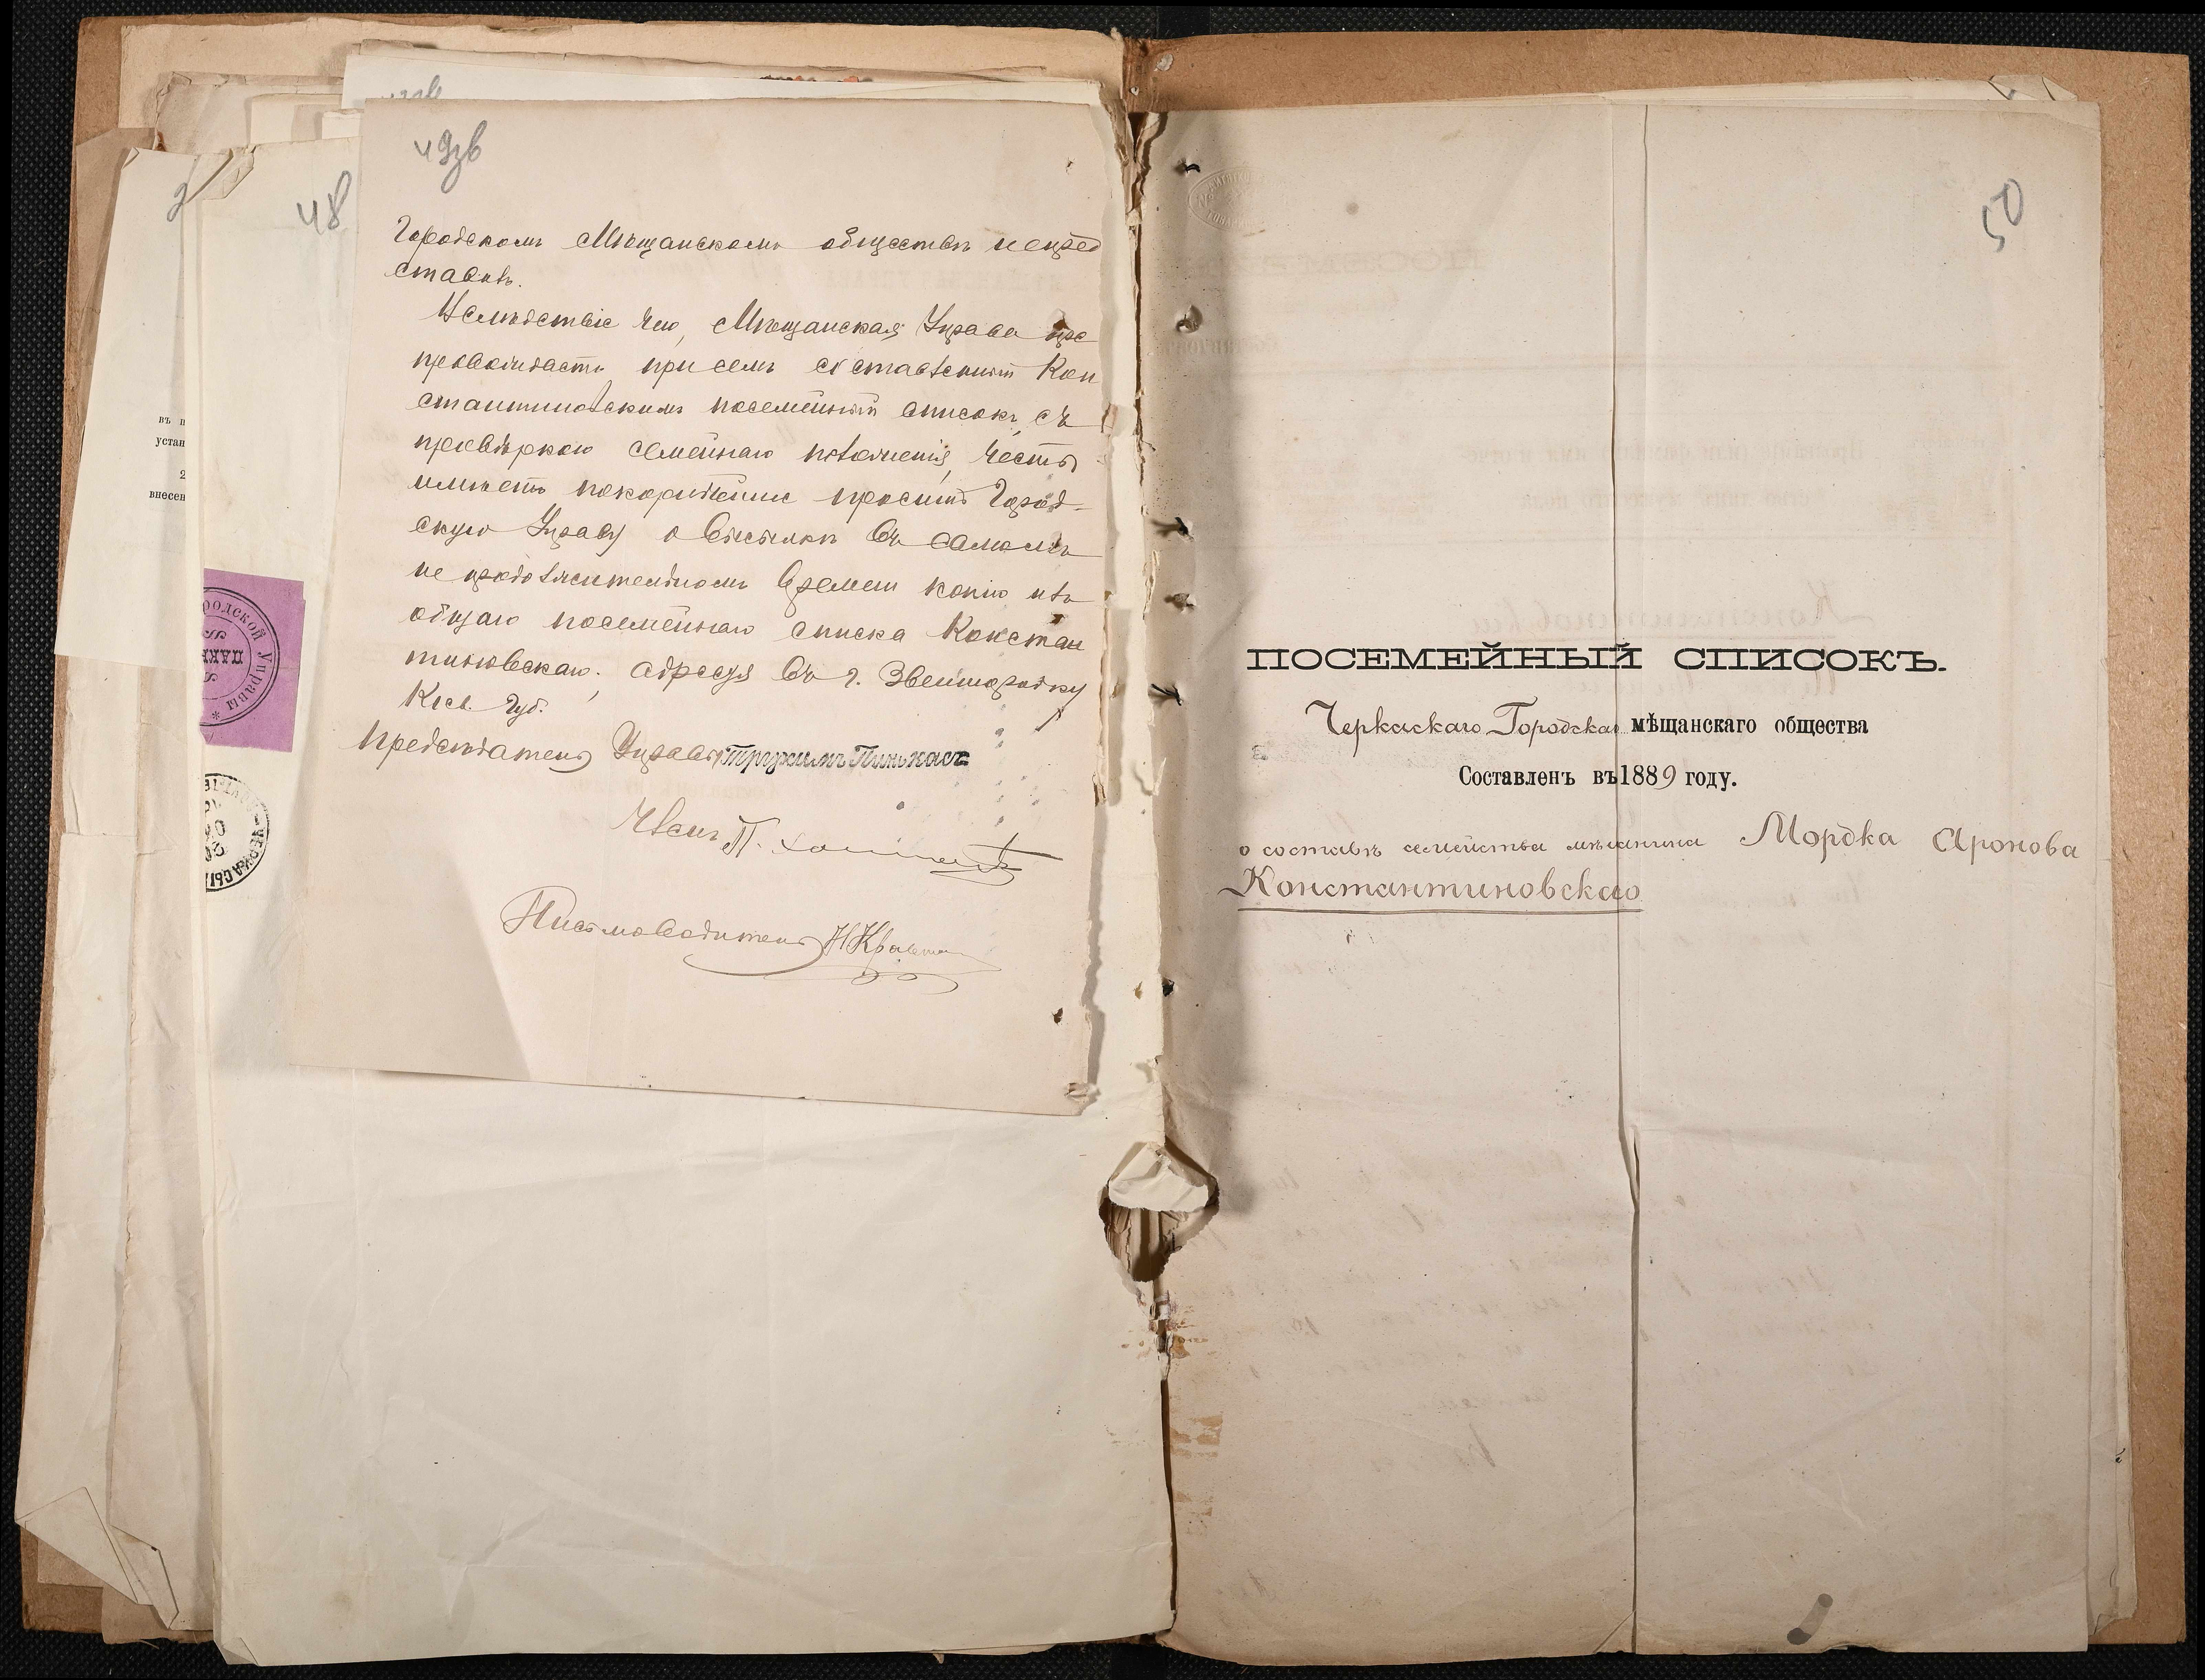 49зв
48
Городскомъ Мѣщанскомъ обществѣ непред
ставилъ.
Вслѣдствіе чего, Мѣщанская Управа пре
провождаетъ при семъ составленный Кон
стантиновскимъ посемейный списокъ, съ
провѣркою семейнаго положенія, честь
имѣетъ покорнѣйше просить Город-
скую Управу о высылкѣ въ самомъ
не продолжительномъ времени копію изъ
общаго посемейнаго списка Констан
тиновскаго. адресуя въ г. Звенигородку
Кіев. Губ.
Предсѣдатель Управы Трухимъ Пинькасъ
Членъ П.
Письмоводитель Н Кравч
въ п
устан
2
внесен
родской Управы
ЧЕРКАСЫ
50
ПОСЕМЕЙНЫЙ СПИСОКЪ.
Черкаскаго Городскаго мѣщанскаго общества
Составленъ въ 1889 году.
о составѣ семейства мѣщанина Мордка Аронова
Константиновскаго